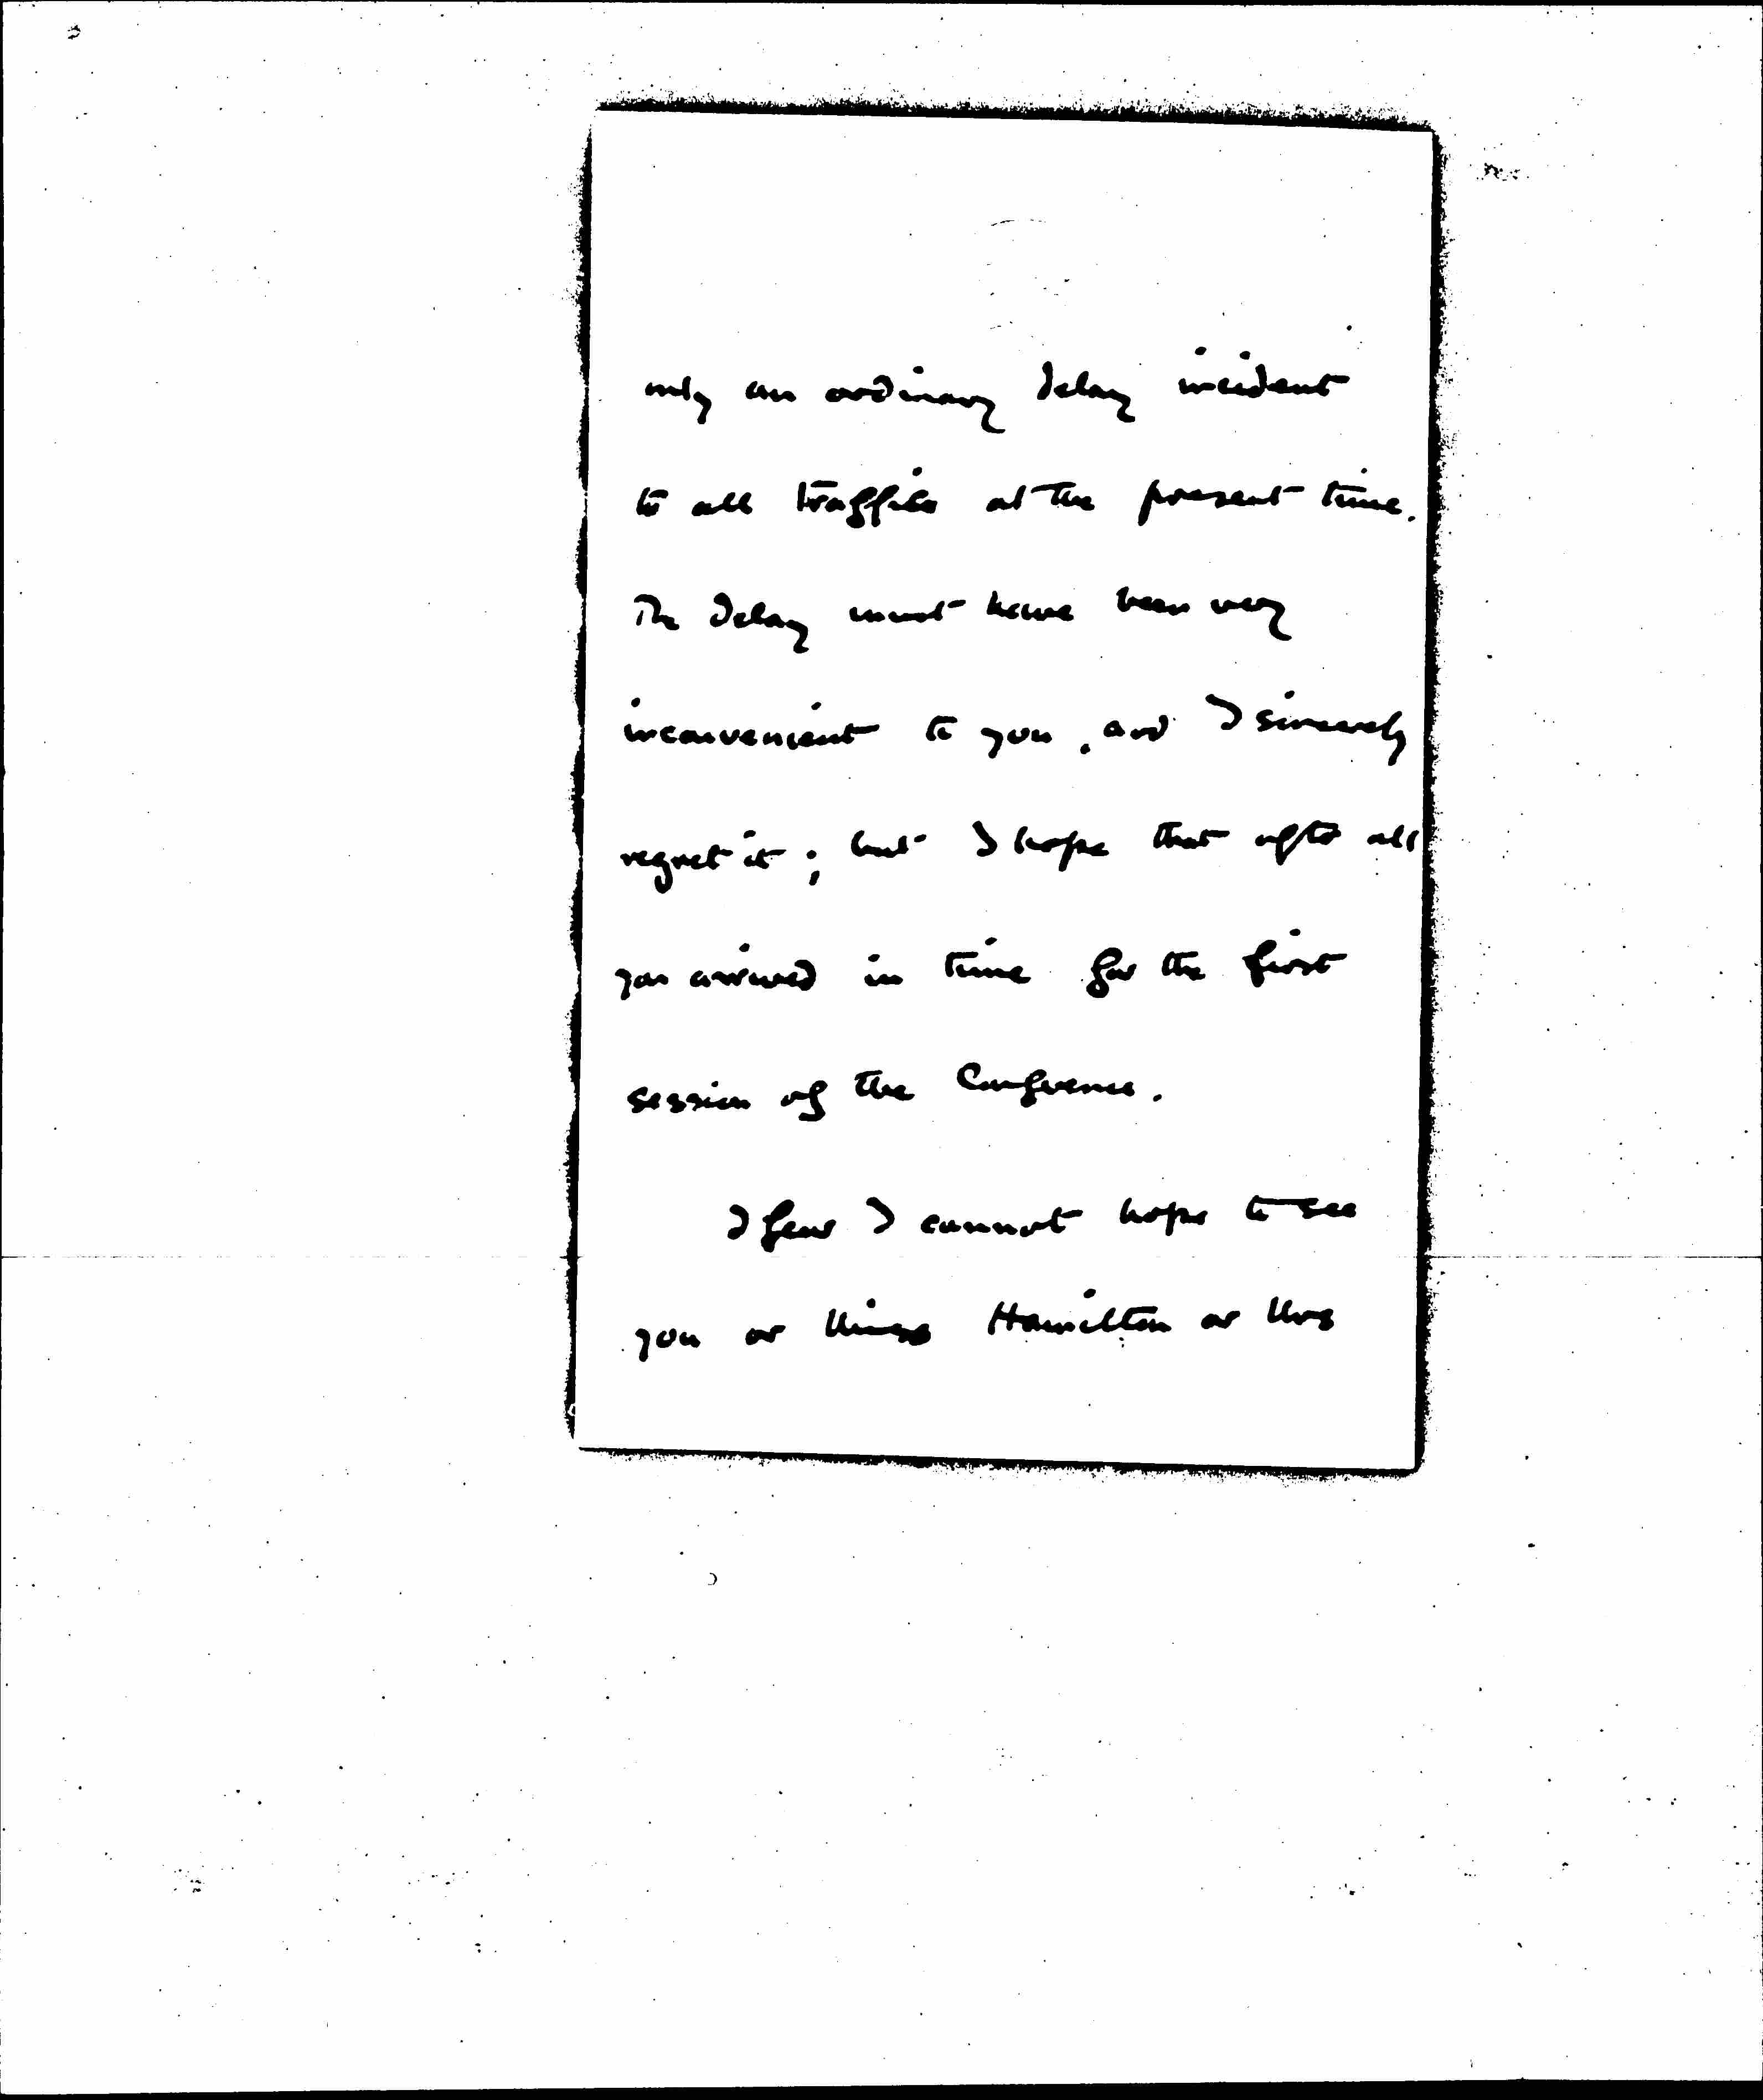 only an ordinary delay incident
to all traffic at the present time.
The delay must have been very
inconvenient to you, and I sincerely
regret it; but I hope that after all
you arrived in time for the first
session of the Conference.
I fear I cannot hope to see
you or Miss Hamilton or Mrs